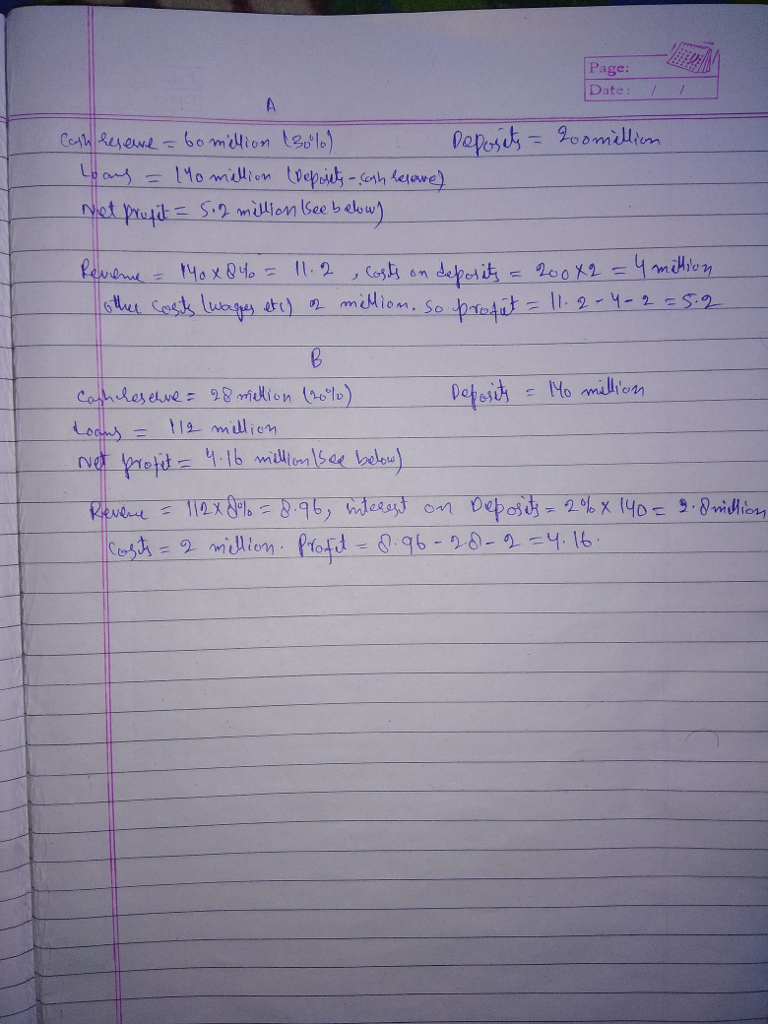 Page:
Date: / /
A
Cash reserve = 60 million (30%) Deposits = 200 million
Loans = 140 million (Deposits - cash reserve)
Net profit = 5.2 million (see below)
Revenue = 140 x 8% = 11.2 , costs on deposits = 200 x 2 = 4 million
other costs (wages etc) 2 million. so profit = 11.2 - 4 - 2 = 5.2
B
Cash reserve = 28 million (20%) Deposits = 140 million
Loans = 112 million
Net profit = 4.16 million (see below)
Revenue = 112 x 8% = 8.96, interest on Deposits = 2% x 140 = 2.8 million
Costs = 2 million. Profit = 8.96 - 2.8 - 2 = 4.16.